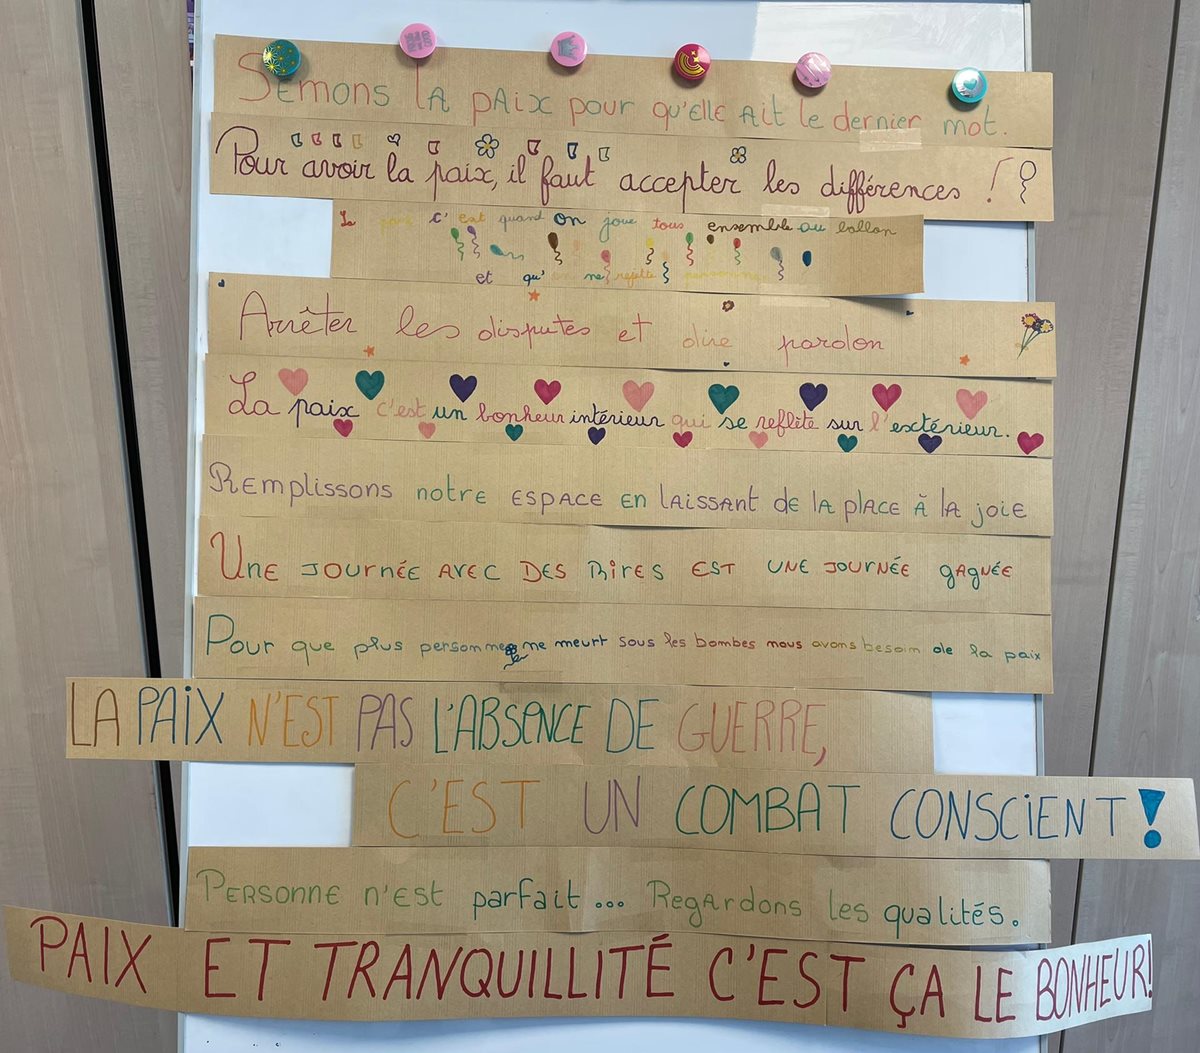 Semons la paix pour qu'elle ait le dernier mot.
Pour avoir la paix, il faut accepter les différences !
La paix c'est quand on joue tous ensemble au ballon
et qu'on ne rejette personne
Arrêter les disputes et dire pardon
La paix c'est un bonheur intérieur qui se reflète sur l'extérieur.
Remplissons notre espace en laissant de la place à la joie
Une journée avec des rires est une journée gagnée
Pour que plus personne ne meurt sous les bombes nous avons besoin de la paix
LA PAIX N'EST PAS L'ABSENCE DE GUERRE,
C'EST UN COMBAT CONSCIENT !
Personne n'est parfait... Regardons les qualités.
PAIX ET TRANQUILLITÉ C'EST ÇA LE BONHEUR!